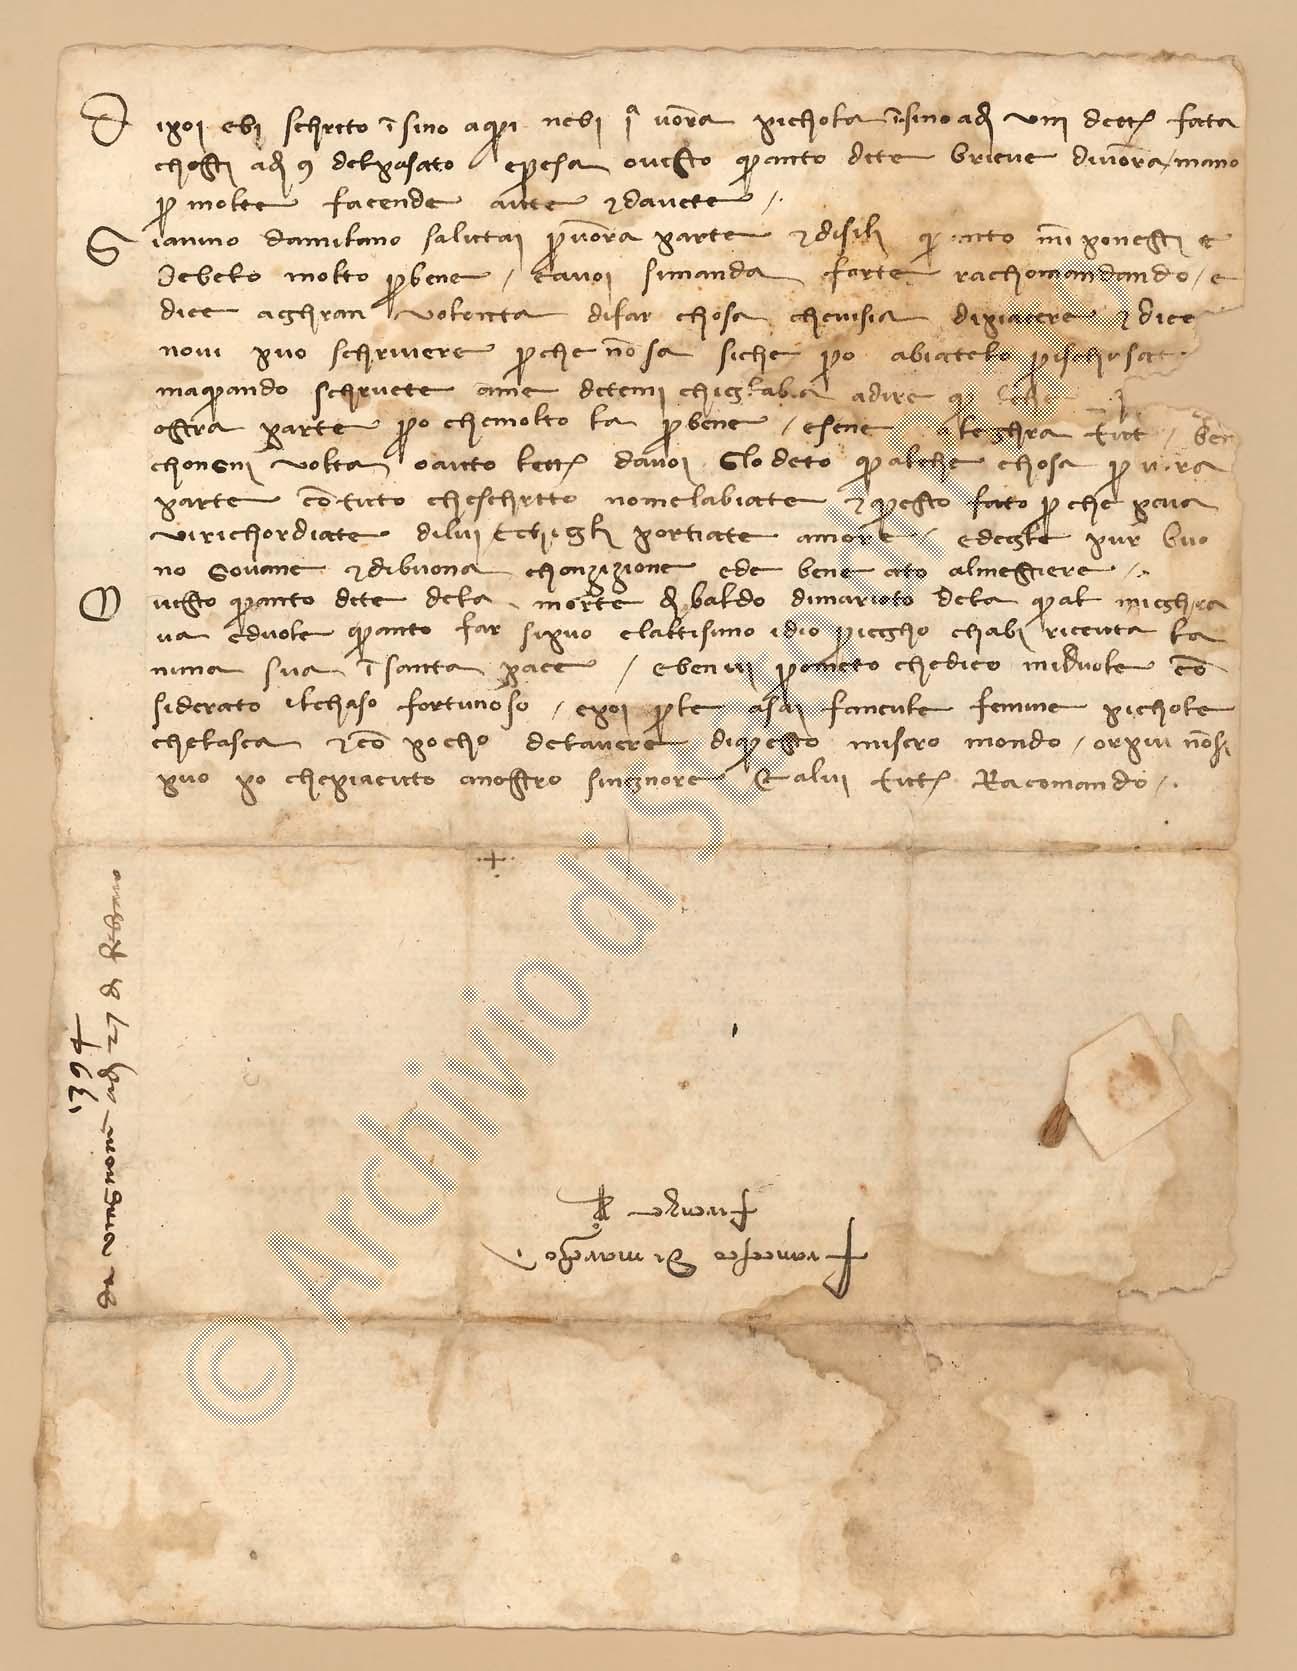 Dipoi ebi schrito ī sino a qui nebi jª vostra pichola īsino adj viij dettᵃ fata
chostj adj 9 del pasato e presa o visto quanto dite brieve di vostra mano
per molte facende avete e davete /.
Gianino da Milano salutai per vostra parte e disilj quanto m'inponestj e
ebelo molto per bene / e a voi si manda forte rachomandando / e
dice a ghran volonta di far chosa che vi sia di piacere e dice
non vi puo schrivere perche non sa siche pero abiatelo per ischusat
ma quando schrivete a me detemi chieglabia a dire q
ostra parte pero che molto la per bene / e sene aleghra tutt / ben
chongni volta o auto lettᵃ da voi glo deto qualche chosa per vostra
parte con tuto che schritto no me labiate e questo fato perche paia
vi richordiate di lui e chegli portiate amore / ed egle pur buo
no govane e di buona chondizione ed e bene ato al mestiere /.
O visto quanto dite dela morte di Baldo di Marioto dela qual mi eghra
va e duole quanto far si puo e laltisimo idio priegho chabi riceuta la
nima sua ī santa pace / e ben vi prometo che dico mi duole con
siderato il chaso fortunoso / e poi per le asai fanciule femine pichole
che lasca e con pocho del avere di questo misero mondo / or piu non si
puo po che piaciuto a nostro singnore e a lui tutt Racomando /.
+
1394
da vingnone adj 27 di febraio
Francescho di Marcho
Firenze